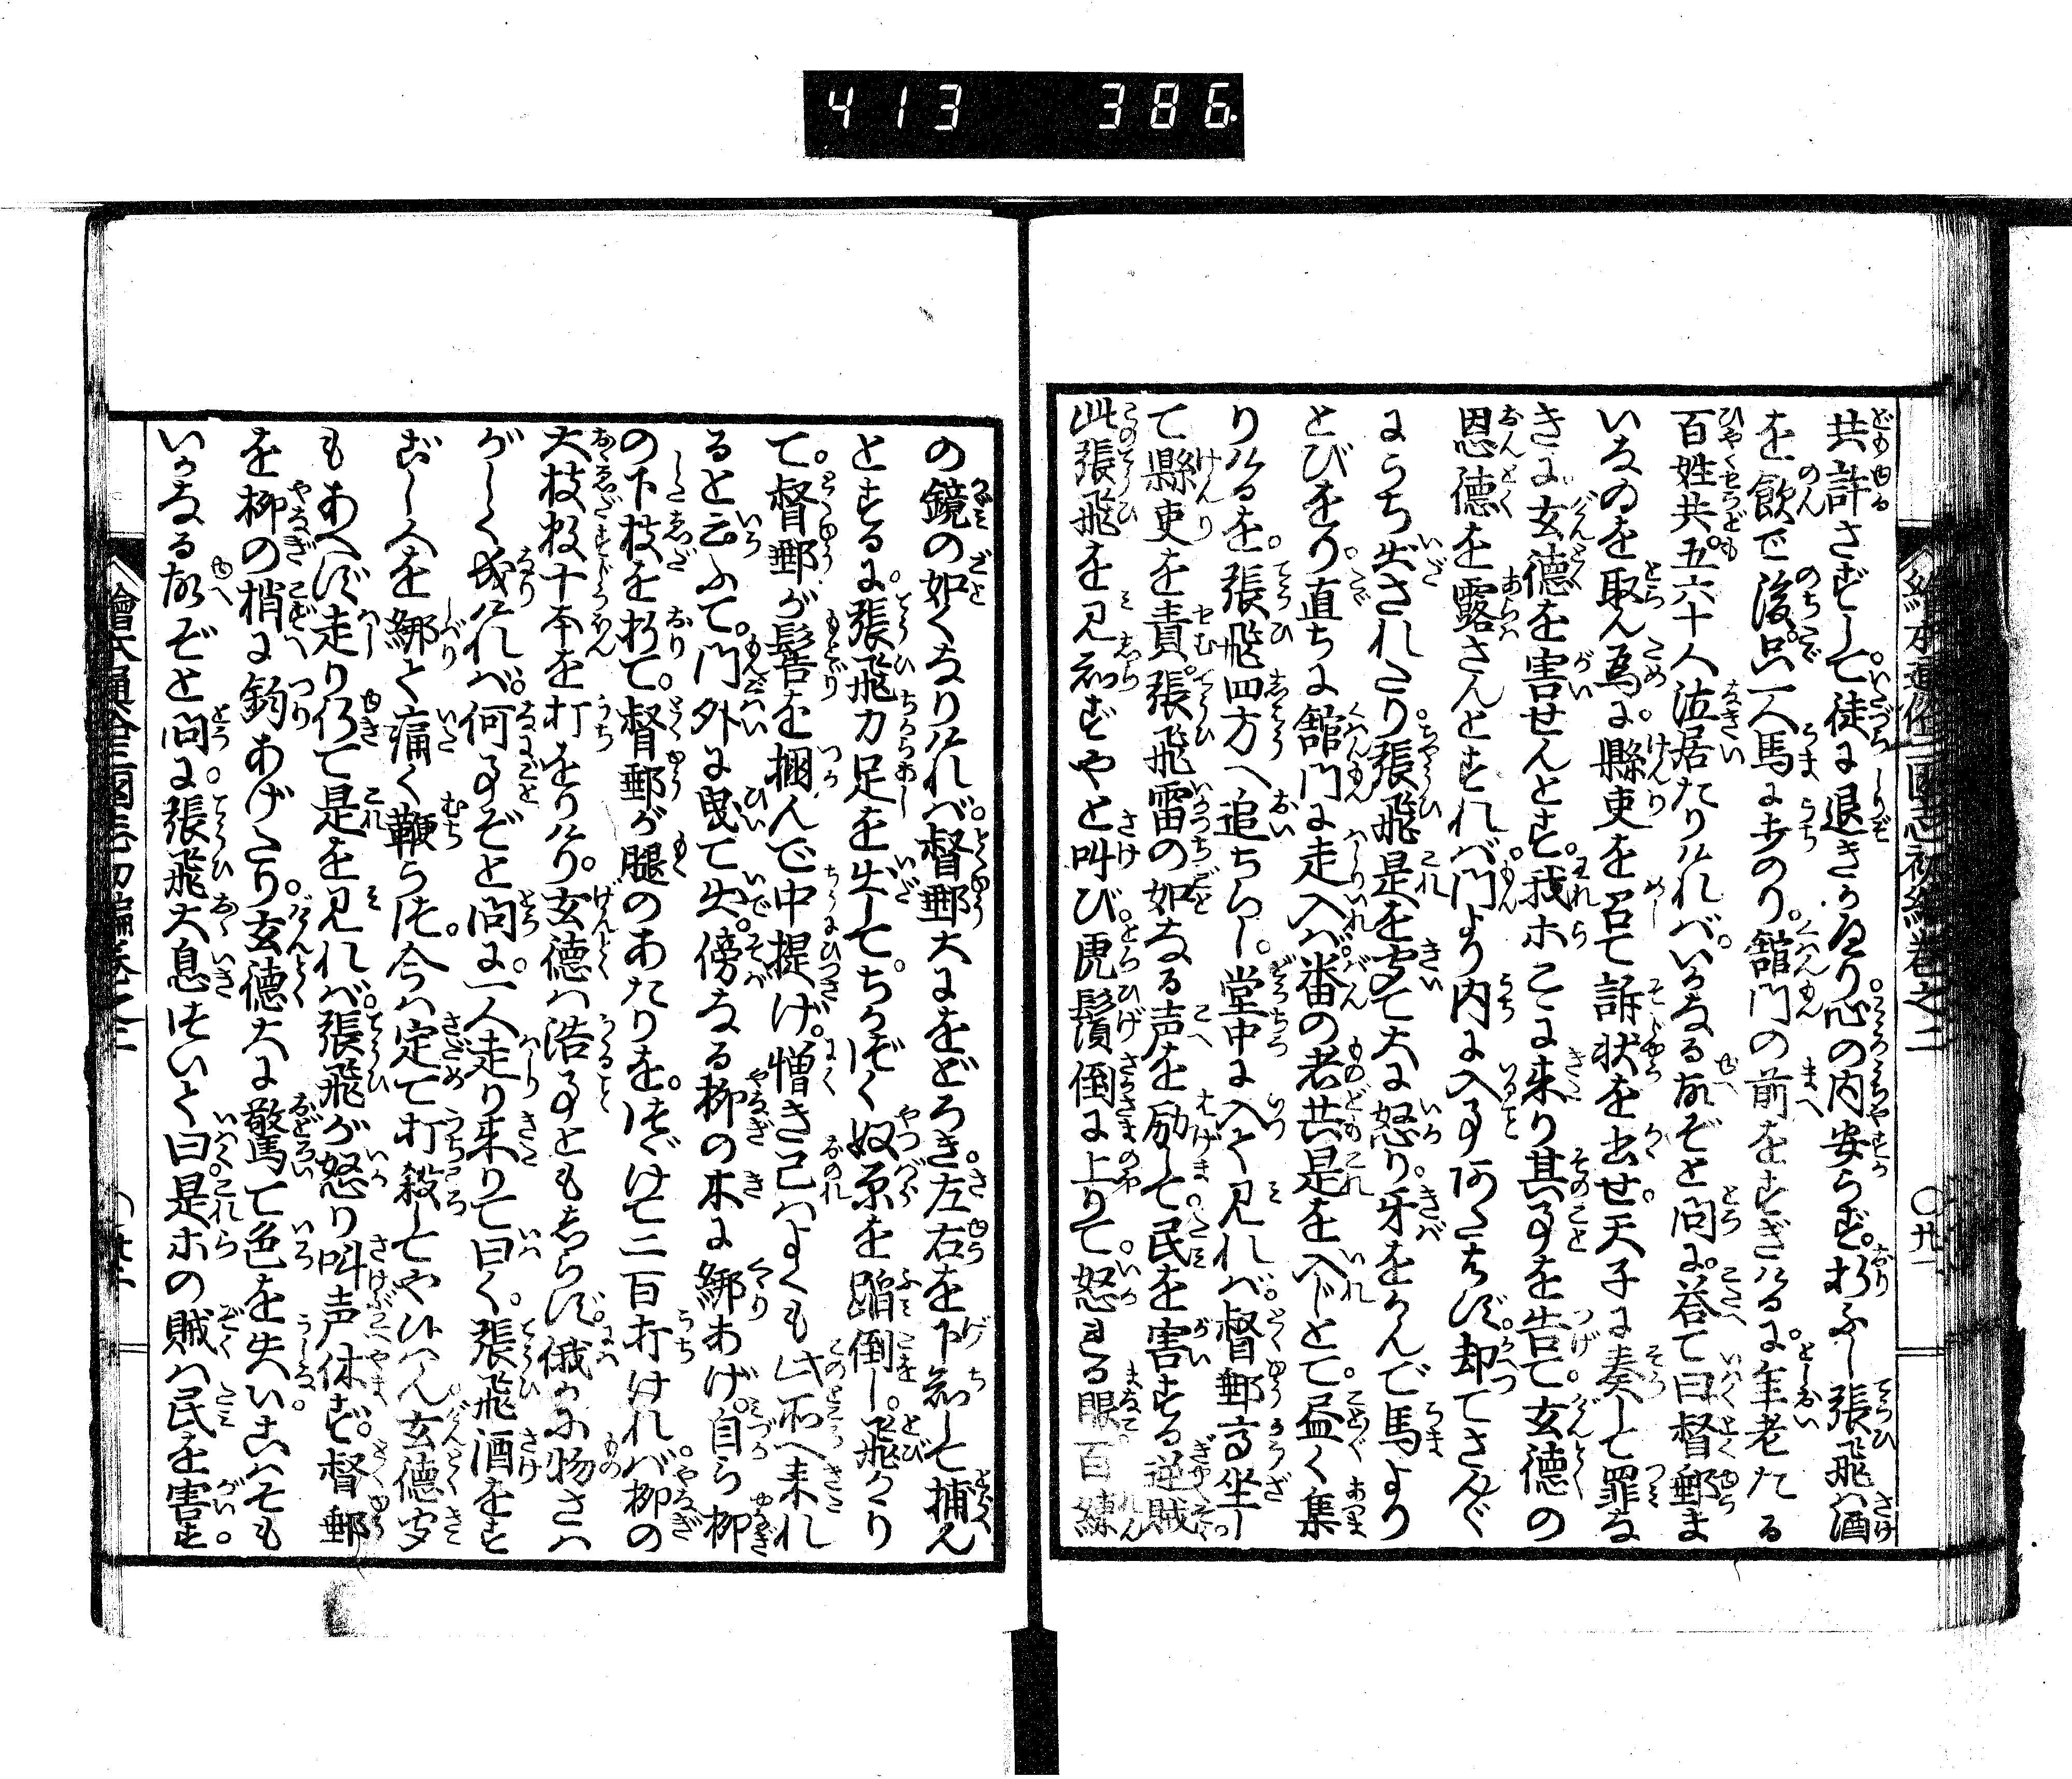 413 386.
繪本通俗三國志初編巻之二 〇廿一
共許さずして。徒に退きかへり。心の内安らず。折ふし張飛ハ酒
を飲で後。只一人馬に打のり。舘門の前をすぎけるに。年老たる
百姓共。五六十人泣居たりけれバ。いかなる故ぞと問に。答て曰督郵ま
いなゐを取ん為に。縣吏を召て訴状を出せ。天子に奏して罪な
きに玄德を害せんとす。我ホこゝに来り其事を告て。玄德の
恩德を露さんとすれバ。門より内に入事あたはず。却てさんざん
にうち出されたり。張飛是を聞て大に怒り。牙をかんで馬より
とびをり。直ちに舘門に走入バ。番の者共是を入じとて。盡く集
りけるを。張飛四方へ追ちらし。堂中に入て見れバ。督郵高坐し
て縣吏を責。張飛雷の如なる声を励して。民を害する逆賊
此張飛を見知ずやと叫び。虎鬚倒に上りて。怒れる眼百練
の鏡の如くなりけれバ。督郵大にをどろき。左右を下知して捕ん
とするに。張飛力足を出して。ちかづく奴原を蹈倒し。飛かゝり
て。督郵が髻を掴んで中に提げ。憎き己ハよくも此所へ来れ
ると云ふて。門外に曳て出。傍なる柳の木に綁あげ。自ら柳
の下枝を折て。督郵が腿のあたりを。つゞけて二百打けれバ。柳の
大枝数十本を打をりけり。玄德ハ浩る事ともしらず。俄かに物さハ
がしく成けれバ。何事ぞと問に。一人走り来りて曰く。張飛酒をす
ごし人を綁て痛く鞭らつ。今ハ定て打殺してやひん。玄德聞
もあへず走り行て是を見れバ。張飛が怒り叫声休ず。督郵
を柳の梢に釣あげたり。玄德大に驚て色を失い。こハそも
いかなる故ぞと問に。張飛大息ついて曰。是ホの賊ハ民を害す。
繪本通俗三國志初編巻之二